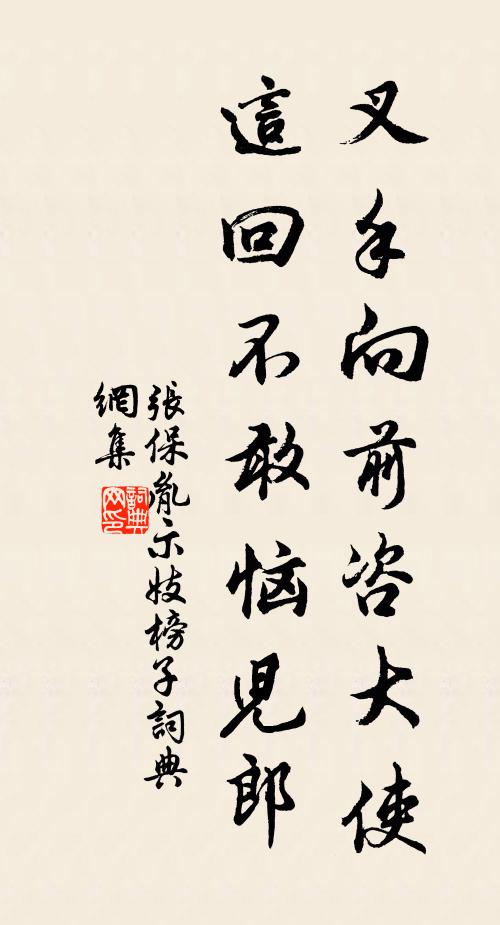 叉手向前咨大使
這回不敢惱兒郎
張保胤示妓榜子詞典
網集
詞典
网印